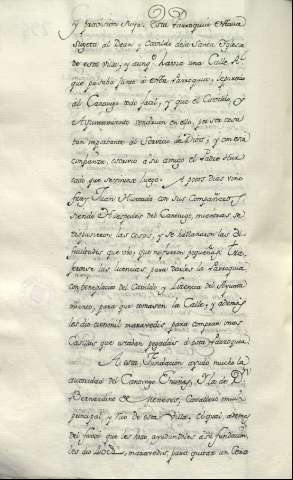 y provision suya. Esta Parroquia estava
sugeta al Dean y Cavildo dela Santa Iglesia
de esta villa, y aunq. havia una Calle Rl.
que pasaba junto á esta Parroquia, le parecio
al Canonigo todo facil, y que el Cavildo, y
Ayuntamiento vendrian en ello, por ser cosa
tan importante al Servicio de Dios, y con esta
confianza, escrivio á su amigo el Padre Hur
tado que se viniese luego. A pocos Dias vino
fray Juan Hurtado con sus Compañeros,
siendo Huespedes del Canonigo, mientras se
dispusieron las cosas, y se allanaron las di
ficultades que vio, que no fueron pequeñas. Tra
geronse las licencias para darles la Parroquia
con beneplacito del Cavildo y licencia del Ayunta
miento, para que tomasen la Calle, y ademas
les dio cien mil maravedis para comprar unas
Casillas que estaban pegadas á esta Parroquia.
A esta Fundacion ayudo mucho la
autoridad del Canonigo y la de Dn.
Bernardino de Meneses, Cavallero mui
principal, y rico de esta Villa, el qual, ademas
del favor que les hizo, ayudandoles á su fundacion,
les dio maravedis, para quitar un Censo